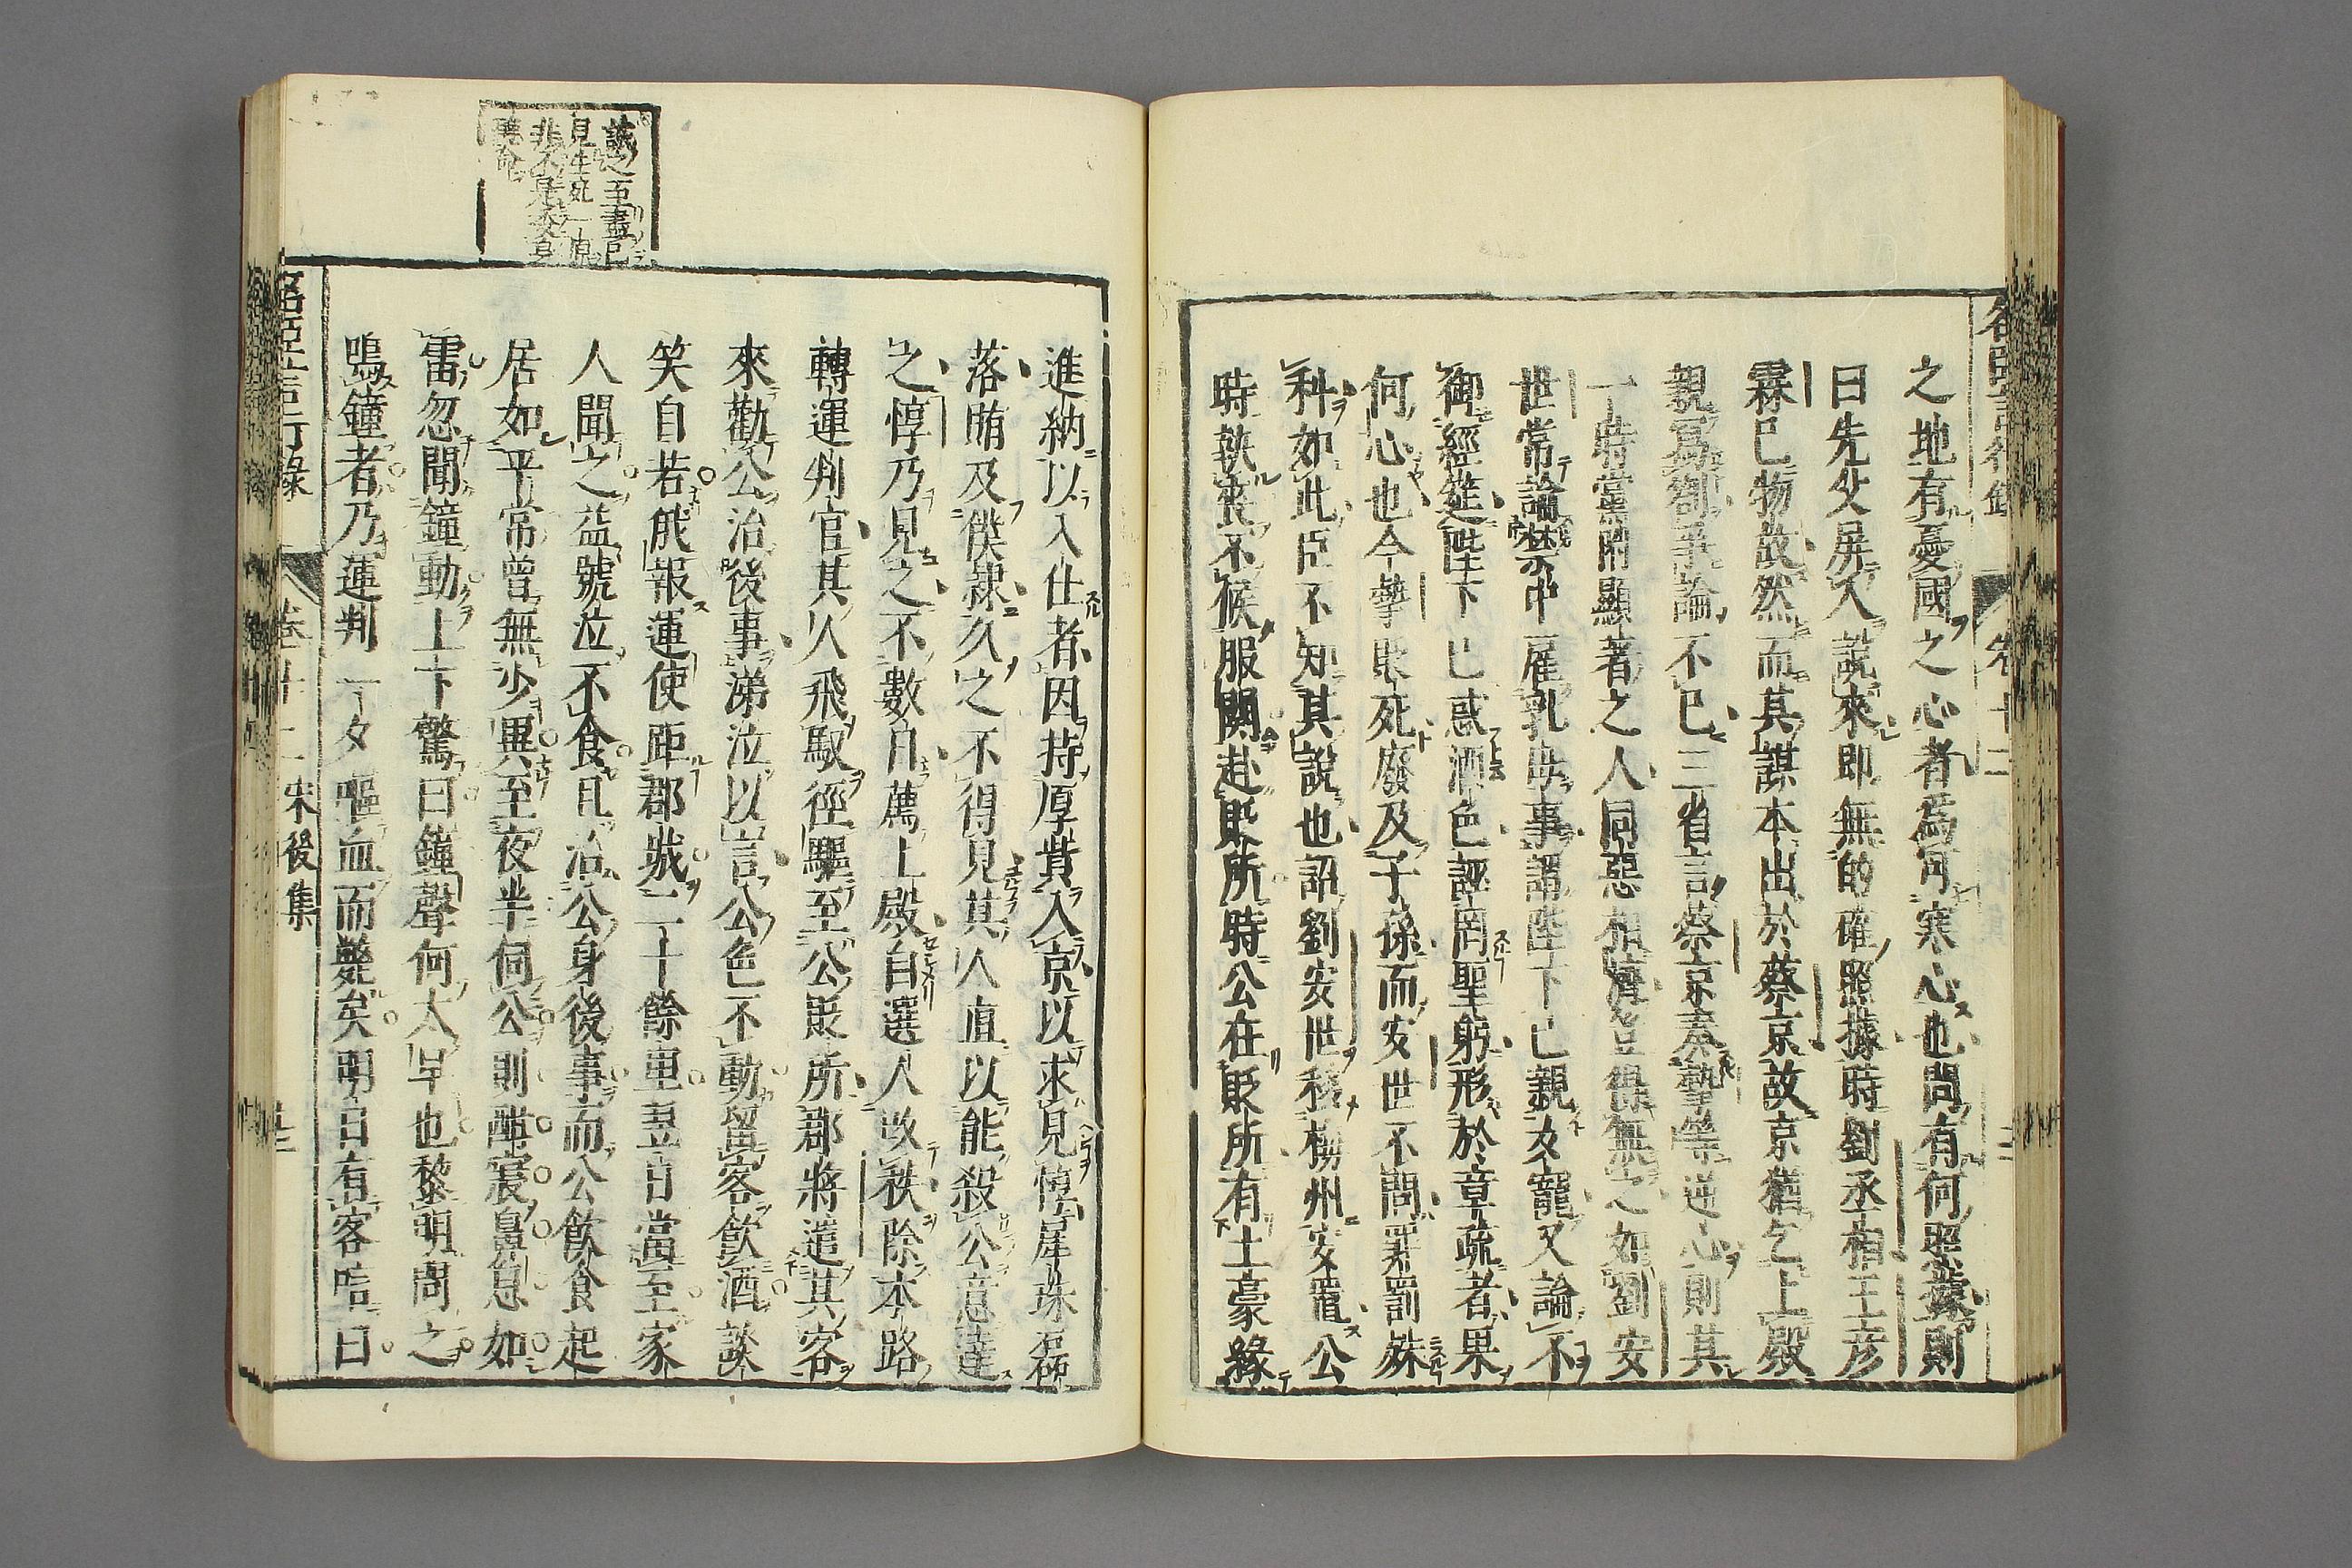 之地有憂國之心者爲可寒心也問有何照據則
曰先父屏人說來即無的確照據時劉丞相王彥
霖已物故然而其謀本出於蔡京故京猶乞上殿
親爲御爭論不已三省言蔡京奏摯等逆心則其
一時黨附顯著之人同惡相濟豈得無之如劉安
世常論禁中雇乳母事謂陛下已親女寵又論不
御經筵陛下已惑酒色誣罔聖躬形於章疏者果
何心也今摯貶死廢及子孫而安世不問罪罰殊
科如此臣不知其說也詔劉安世移梅州安置公
時執喪不候服闋赴貶所時公在貶所有土豪緣
進納以入仕者因持厚貲入京以求見惇犀珠磊
落賄及僕隸久之不得見其人直以能殺公意達
之惇乃見之不數日薦上殿自選人改秩除本路
轉運判官其人飛馭徑驅至公貶所郡將遣其客
來勸公治後事涕泣以言公色不動留客飲酒談
笑自若俄報運使距郡城二十餘里翌日當至家
人聞之益號泣不食且治公身後事而公飲食起
居如平常曾無少異至夜半伺公則酣寢鼻息如
雷忽聞鐘動上下驚曰鐘聲何太早也黎明問之
鳴鐘者乃運判一夕嘔血而斃矣明日有客唁曰
誠之至盡
見生死一
名臣言行錄
卷十二
宋後集